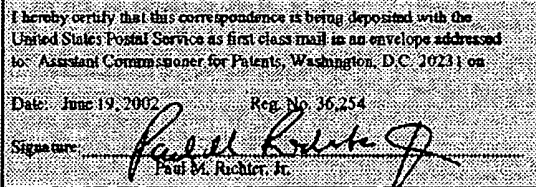 I hereby certify that this correspondence is being deposited with the
United States Postal Service as first class mail in an envelope addressed
to: Assistant Commissioner for Patents, Washington, D.C. 20231 on
Date: June 19, 2002 Reg. No. 36,254
Signature:
Paul M. Richter, Jr.